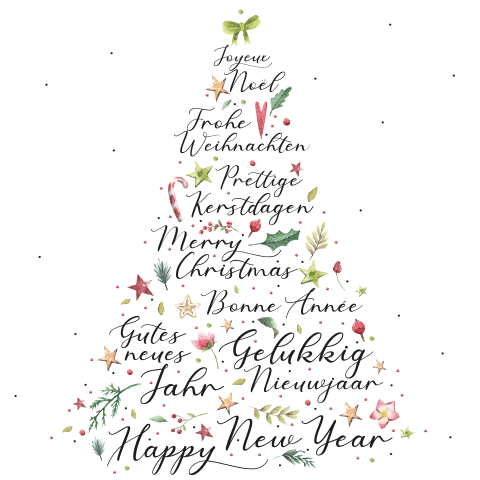 Joyeux
Noël
Frohe
Weihnachten
Prettige
Kerstdagen
Merry
Christmas
Bonne Année
Gutes
neues
Jahr
Gelukkig
Nieuwjaar
Happy New Year